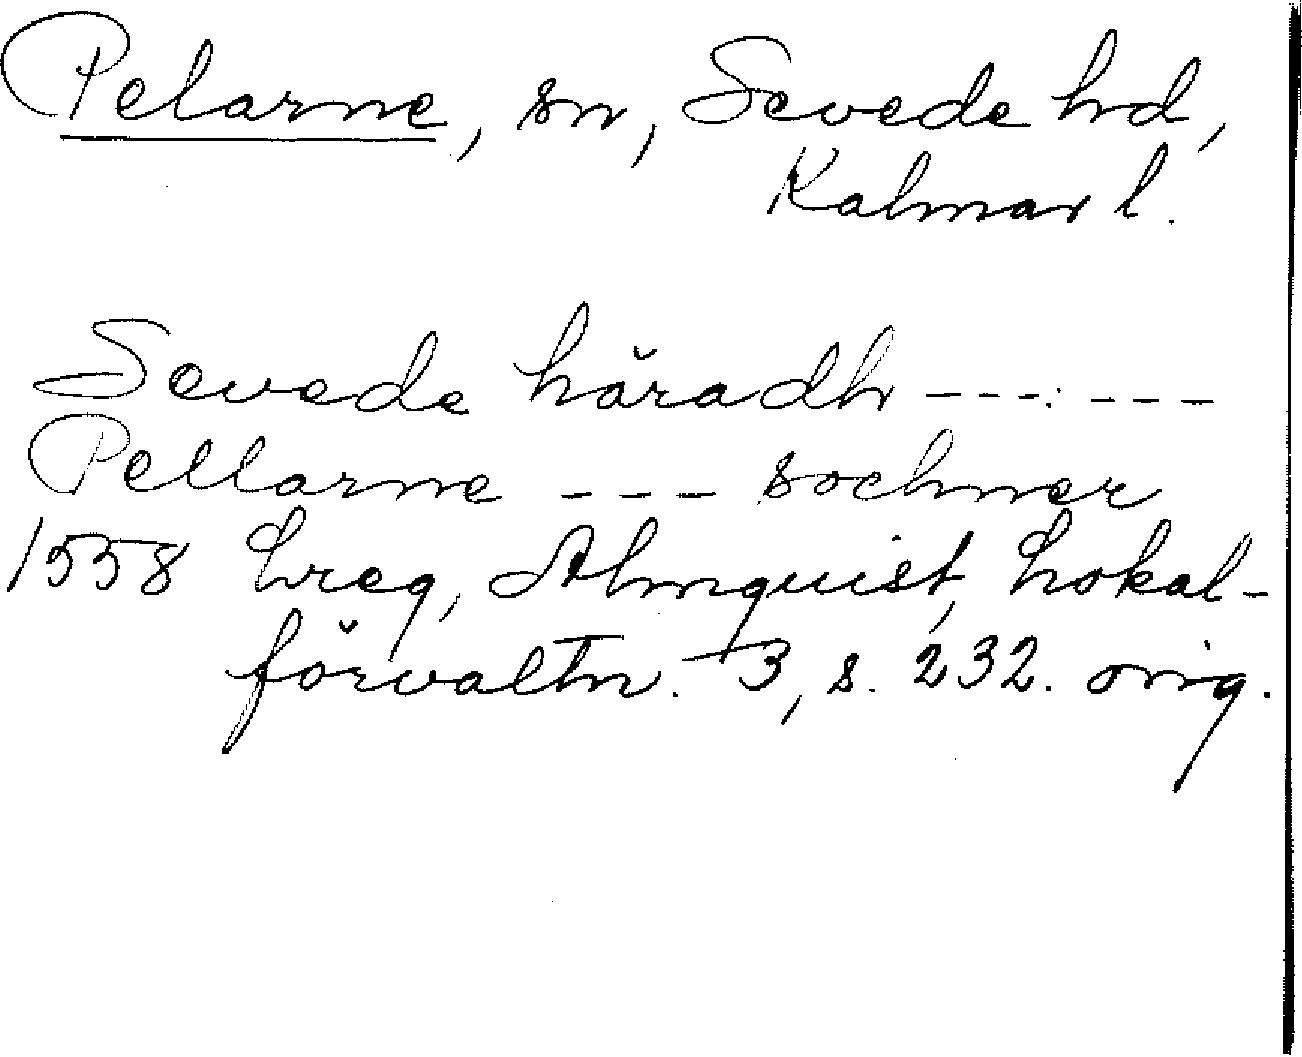 Pelarne, sn, Sevede hd,
Kalmar l.
Sevede häradh ---:---
Pellarne --- sochner
1558 Lreg, Almquist, Lokal-
förvaltn. 3, s. 232. orig.